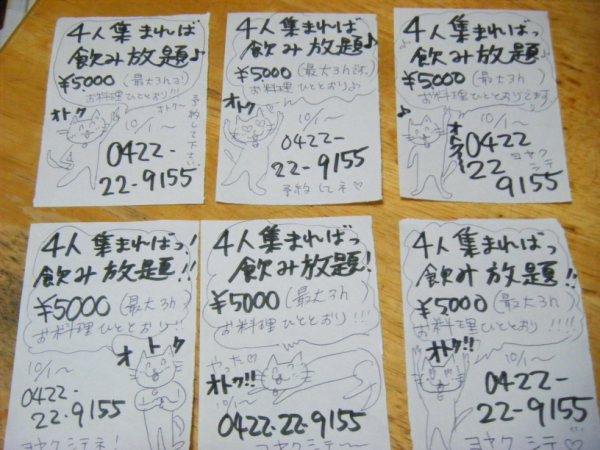 4人集まれば
飲み放題♪
¥5000(最大3h!)
お料理ひととおり!!!
オトク〜
オトク
10/1〜
予約して下さい
0422-
22-9155
4人集まれば
飲み放題♪
¥5,000(最大3hです。)
お料理ひととおり♪
オトク
10/1〜
0422-
22-9155
予約してネ♡
♪4人集まれば
飲み放題♪
¥5000(最大3h)
お料理ひととおりでます。
♪
10/1〜
0422
22
9155
ヨヤク
シテ
4人集まればっ!
飲み放題!!
¥5000(最大3h)
お料理ひととおり!!
オトク
10/1〜
0422-
22-9155
ヨヤクシテネ!
4人集まればっ
飲み放題!
¥5000(最大3h)
お料理ひととおり!!!
やった♡
オトク!!
10/1〜
0422-22-9155
ヨヤクシテ〜
4人集まればっ
飲み放題!!
¥5000(最大3h)
お料理ひととおり!!!!
オトク!!
10/1〜
0422-
22-9155
ヨヤクシテ♡